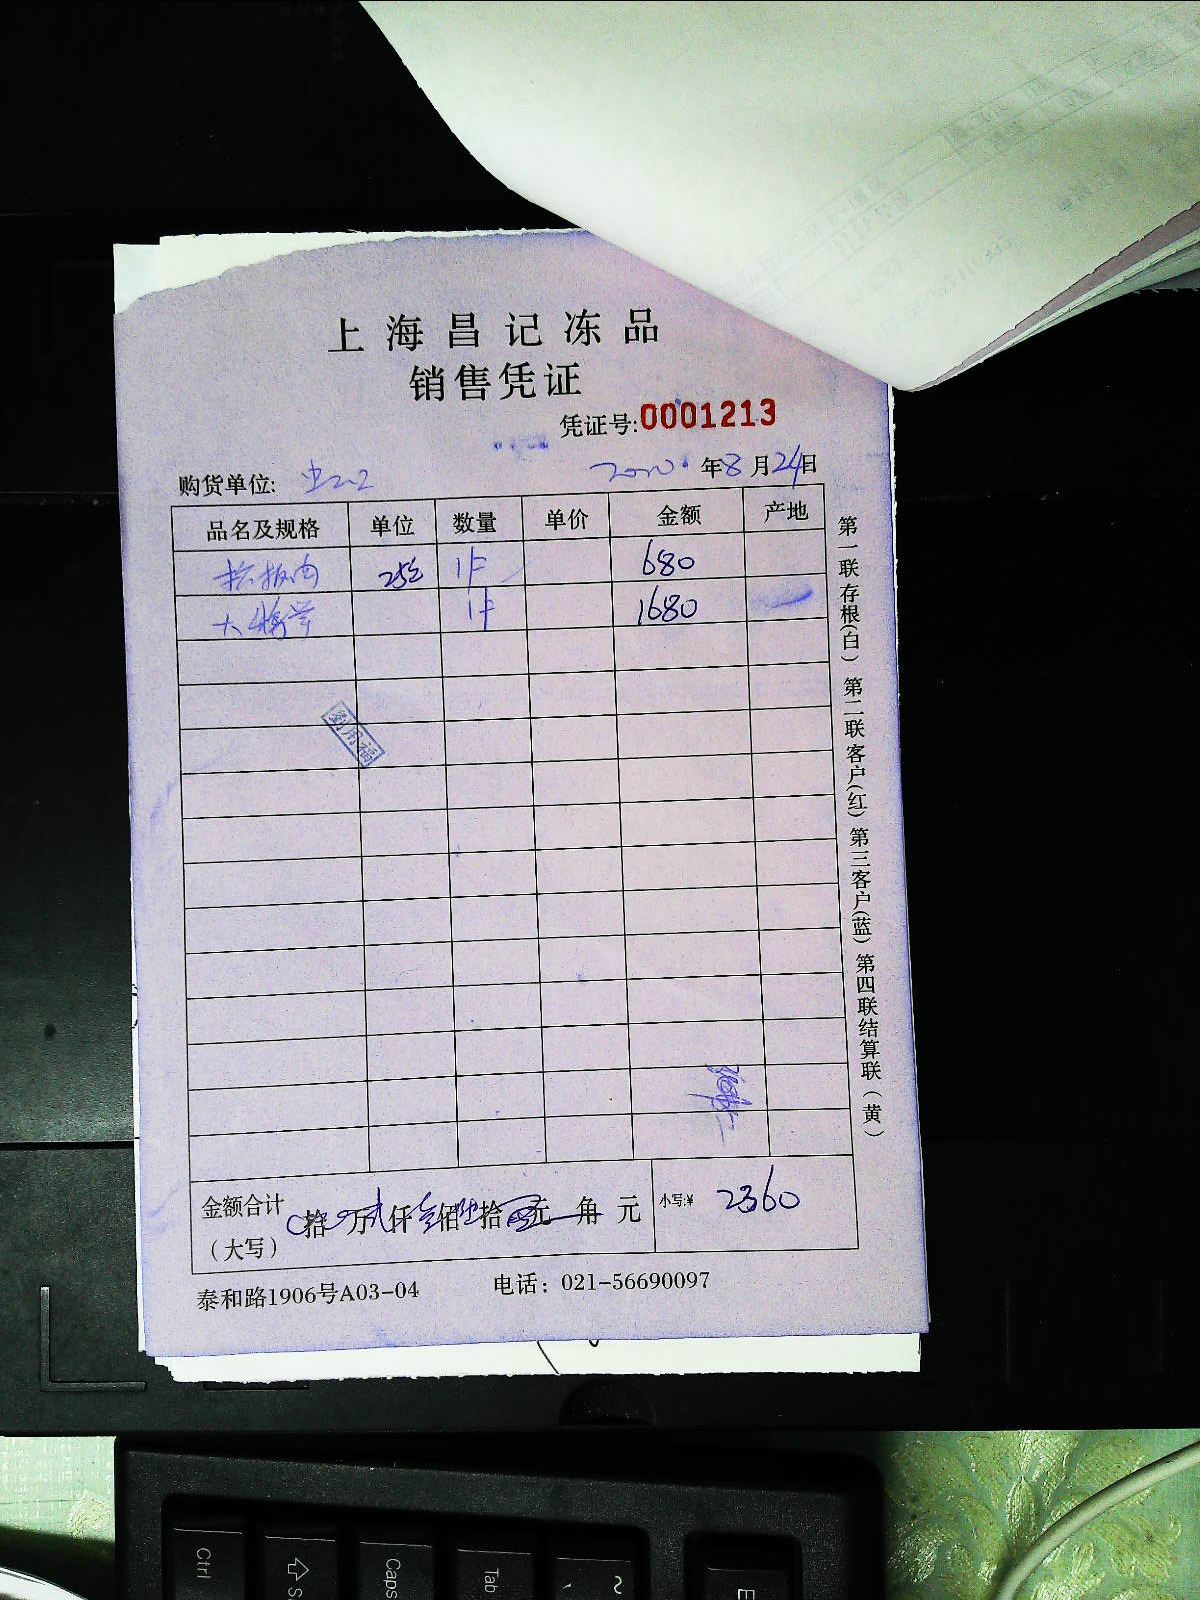 上海昌记冻品
销售凭证
凭证号:0001213
购货单位: 2010年8月24日
品名及规格 单位 数量 单价 金额 产地
1件 680
大 1件 1680
金额合计 拾 万 仟 佰 拾 元 角 元 小写:¥ 2360
(大写)
泰和路1906号A03-04 电话: 021-56690097
第一联存根(白) 第二联客户(红) 第三客户(蓝) 第四联结算联(黄)
Ctrl
Caps
Tab
~